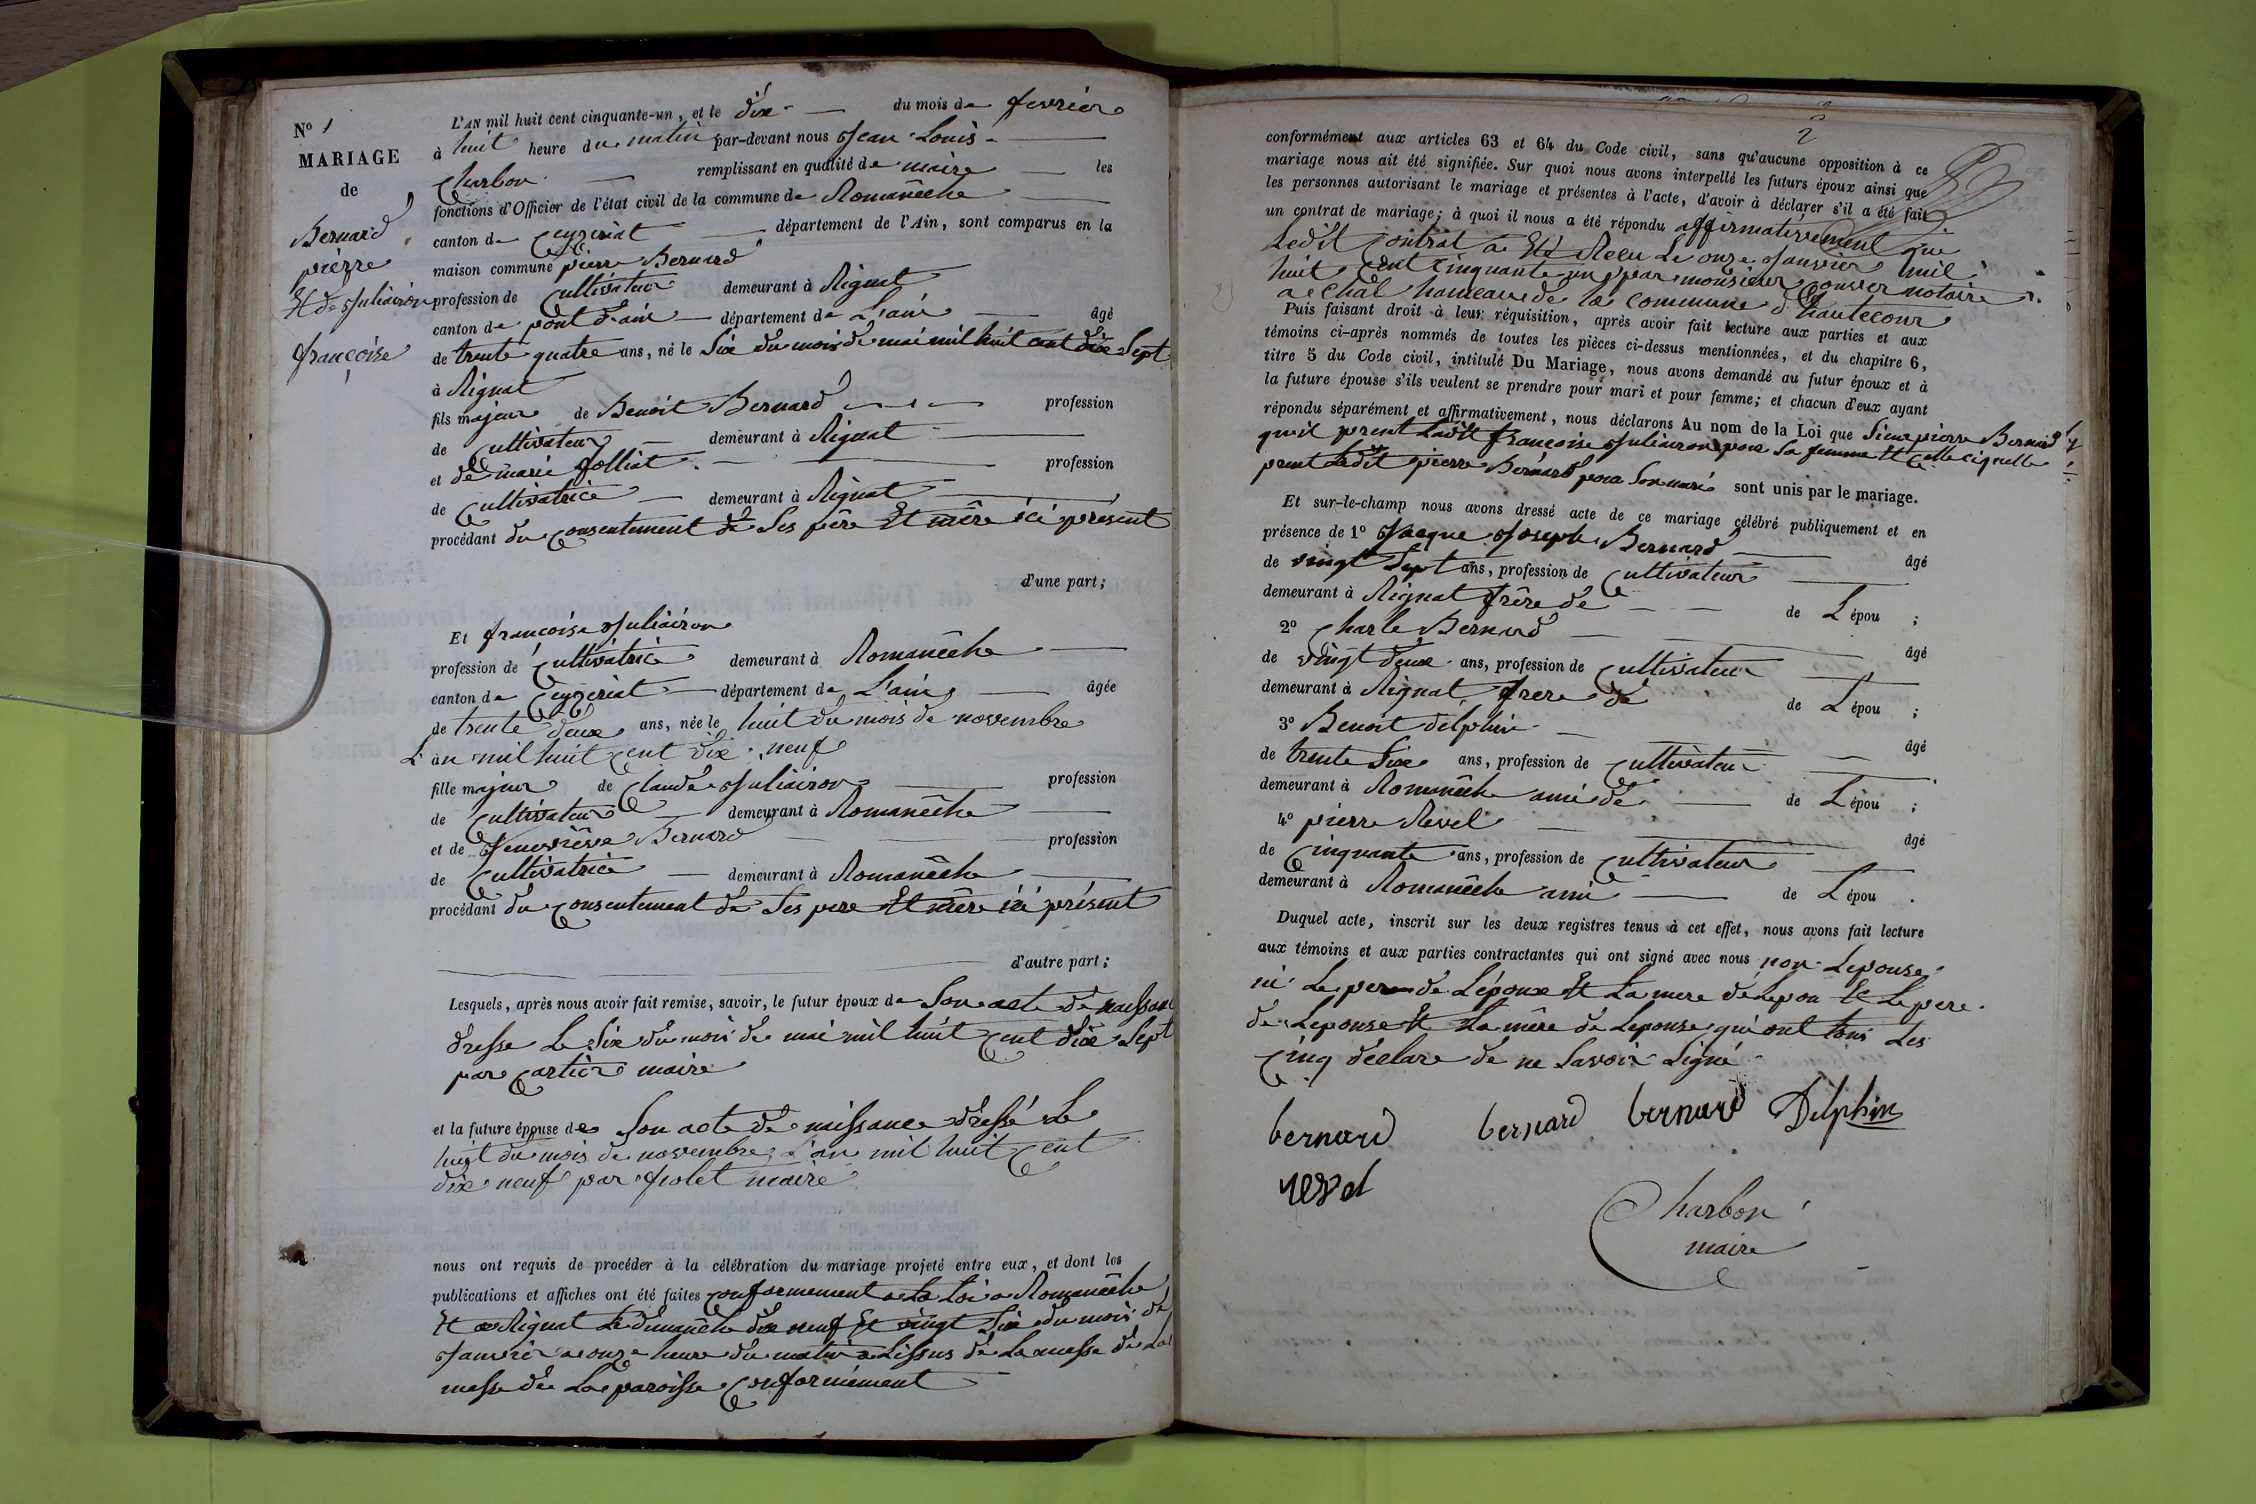 N° 1
MARIAGE
de
Bernard
pièrre
Et de Juliairon
françoise
L'AN mil huit cent cinquante-un, et le dix du mois de fevrièr
à huit heure du matin par-devant nous Jean Louis
Charbon remplissant en qualité de maire les
fonctions d'Officier de l'état civil de la commune de Romanêche
canton de Ceyzeriat département de l'Ain, sont comparus en la
maison commune pierre Bernard
profession de Cultivateur demeurant à Rignat
canton de pont d'ain département de L'ain âgé
de trente quatre ans, né le Six du mois de mai mil huit cent dix Sept
à Rignat
fils majeur de Benoit Bernard profession
de Cultivateur demeurant à Rignat
et de marie folliat profession
de Cultivatrice demeurant à Rignat
procédant du Consentement de Ses père Et mêre ici présent
d'une part;
Et françoise Juliairon
profession de Cultivatrice demeurant à Romanêche
canton de Ceyzeriat département de L'ain âgée
de trente deux ans, née le huit du mois de novembre
L'an mil huit Cent dix neuf
fille majeur de Claude Juliairon profession
de Cultivateur demeurant à Romanêche
et de Jenevrieve Bernard profession
de Cultivatrice demeurant à Romanêche
procédant du Consentement de Ses pere Et mêre ici présent
d'autre part;
Lesquels, après nous avoir fait remise, savoir, le futur époux de Son acte de naissan
dresse Le Six du mois de mai mil huit Cent dix Sept
par Cartier maire
et la future épouse de Son acte de naissance dressé Le
huit du mois de novembre L'an mil huit Cent
dix neuf par frolet maire
nous ont requis de procéder à la célébration du mariage projeté entre eux, et dont les
publications et affiches ont été faites Conformement a La Loi a Romanêche
Et a Rignat Le dimanche dix neuf Et vingt Six du mois de
Janvièr a onze heure du matin a Lissus de La messe de La
messe de La paroisse Conformément
2
conformément aux articles 63 et 64 du Code civil, sans qu'aucune opposition à ce
mariage nous ait été signifiée. Sur quoi nous avons interpellé les futurs époux ainsi que
les personnes autorisant le mariage et présentes à l'acte, d'avoir à déclarer s'il a été fait
un contrat de mariage; à quoi il nous a été répondu affirmativement que
Ledit Contrat a Eté Recu Le onze Janvier mil
huit Cent Cinquante un par monsieur notaire
a Chal hameau de la Commune d'hautecour
Puis faisant droit à leur réquisition, après avoir fait lecture aux parties et aux
témoins ci-après nommés de toutes les pièces ci-dessus mentionnées, et du chapitre 6,
titre 5 du Code civil, intitulé Du Mariage, nous avons demandé au futur époux et à
la future épouse s'ils veulent se prendre pour mari et pour femme; et chacun d'eux ayant
répondu séparément et affirmativement, nous déclarons Au nom de la Loi que Sieur pierre Bernard
qu'il prent Ladite françoise Juliairon pour Sa femme Et quelle
prent Ledit pierre Bernard pour Son mari sont unis par le mariage.
Et sur-le-champ nous avons dressé acte de ce mariage célébré publiquement et en
présence de 1° Jacque Joseph Bernard âgé
de vingt Sept ans, profession de Cultivateur
demeurant à Rignat frêre de de L'épou ;
2° Charle Bernard âgé
de vingt deux ans, profession de Cultivateur
demeurant à Rignat frere de de L'épou ;
3° Benoit delphin âgé
de trente Six ans, profession de Cultivateur
demeurant à Romanêche ami de de L'épou ;
4° pièrre Revel âgé
de Cinquante ans, profession de Cultivateur
demeurant à Romanêche ami de L'épou .
Duquel acte, inscrit sur les deux registres tenus à cet effet, nous avons fait lecture
aux témoins et aux parties contractantes qui ont signé avec nous non Lepouse
ni Le pere de L'époux Et La mere de Lepou Et Le pere
de Lepouse Et La mêre de Lepouse qui ont tous Les
Cinq déclare de ne Savoir Signé
bernard bernard bernard Delphin
revel
Charbon
maire